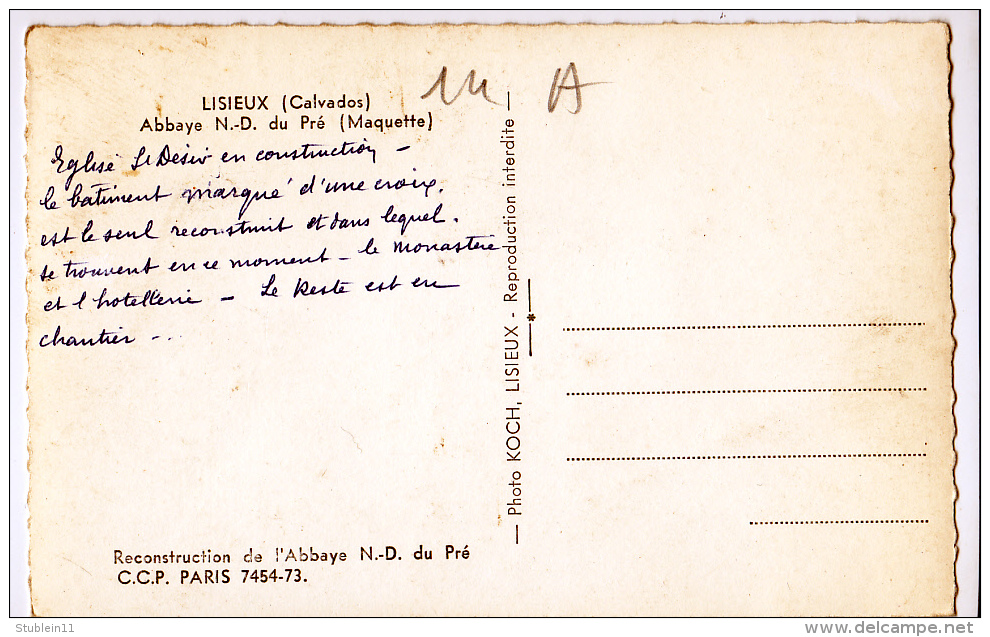 LISIEUX (Calvados)
Abbaye N.-D. du Pré (Maquette)
Eglise St Désir en construction -
le bâtiment marqué d'une croix.
est le seul reconstruit et dans lequel.
se trouvent en ce moment - le monastère
et l'hotellerie - Le Reste est en
chantier - ..
Reconstruction de l'Abbaye N.-D. du Pré
C.C.P. PARIS 7454-73.
— Photo KOCH, LISIEUX - Reproduction interdite —
A
Stublein11
http://www.delcampe.net